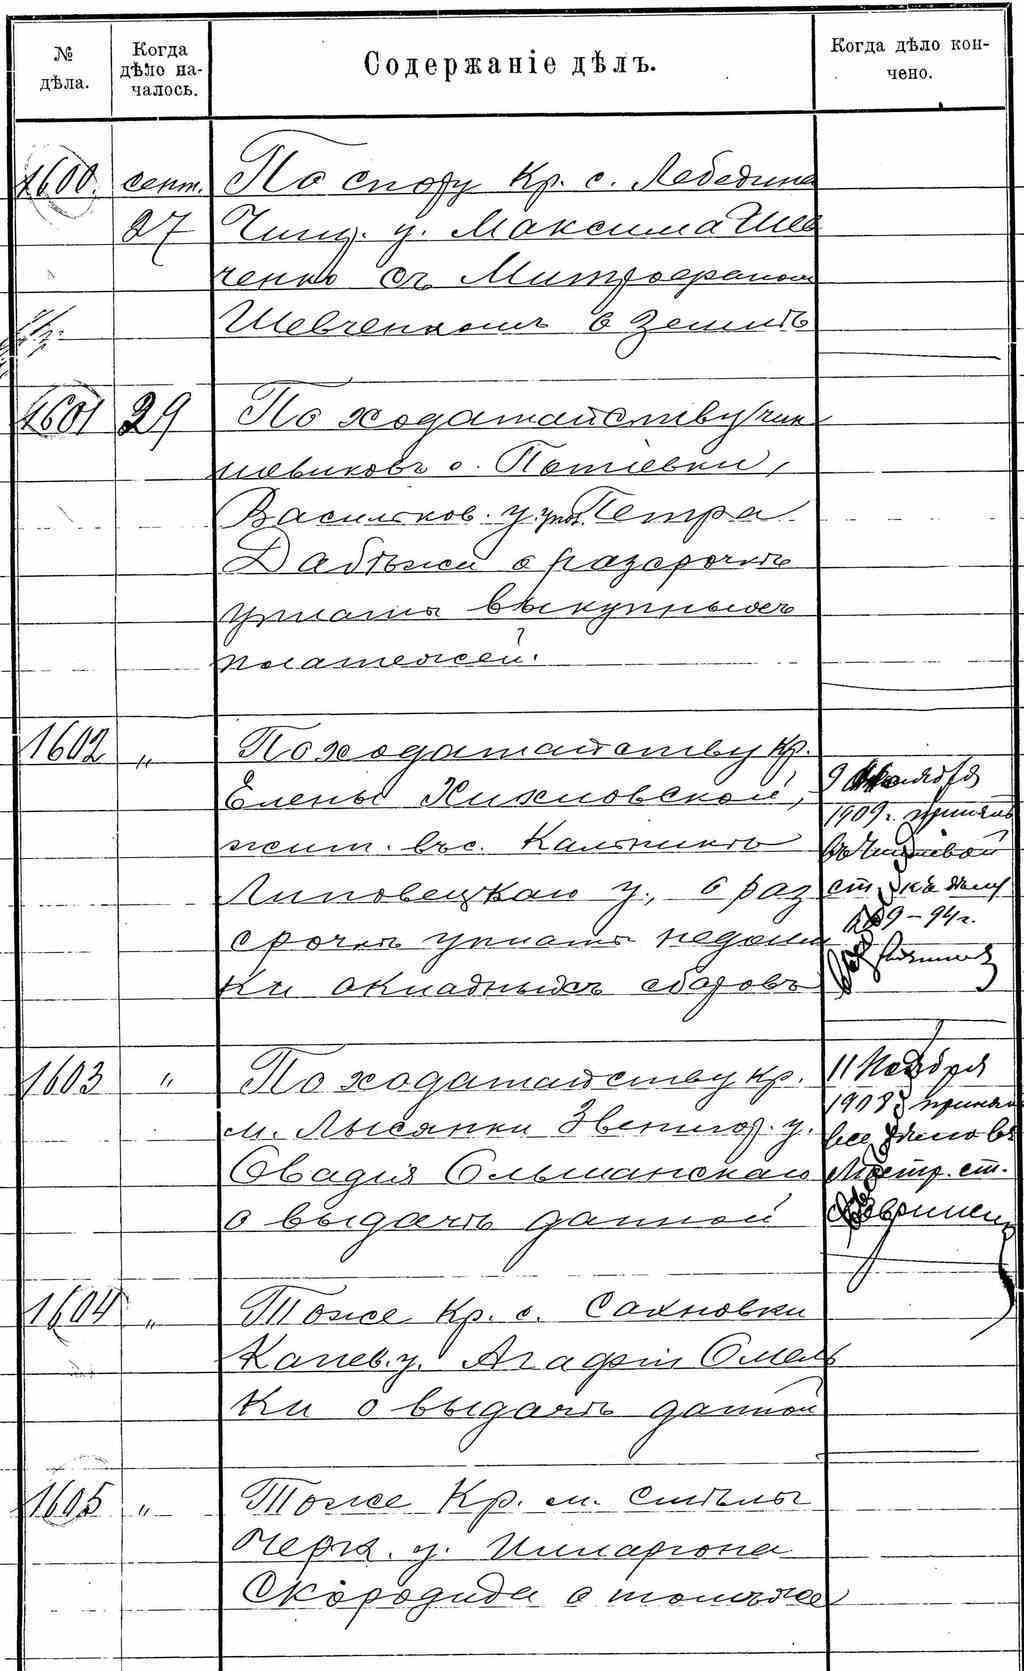 № дѣла.
Когда дѣло началось.
Содержаніе дѣлъ.
Когда дѣло кончено.
1600. сент. По спору Кр. с. Лебедина
27 Чиг. у. Максима Шев
ченко съ Митрофаномъ
Шевченкомъ о землѣ
1601 29 По ходатайству чин
шевиковъ с. Потіевки,
Васильков. у. Петра
Дабѣжи о разсрочкѣ
уплаты выкупныхъ
платежей.
1602 „ По ходатайству Кр.
Елены Хихловской,
жит. въ с. Кальникѣ
Липовецкаго у., о раз
срочкѣ уплаты недоим
ки окладныхъ сборовъ
1909 г. принялъ
ст. къ дѣлу
1603 „ По ходатайству кр.
м. Лысянки Звениг. у.
Овадія Ольшанскаго
о выдачѣ данной
11 Ноября
1908 принял
все дѣло въ
ст.
1604 „ Тоже Кр. с. Сахновки
Канев. у. Агафіи Омель
ки о выдачѣ данной
1605 „ Тоже Кр. м. Смѣлы
Черк. у. Илларіона
Скородида о томъ же